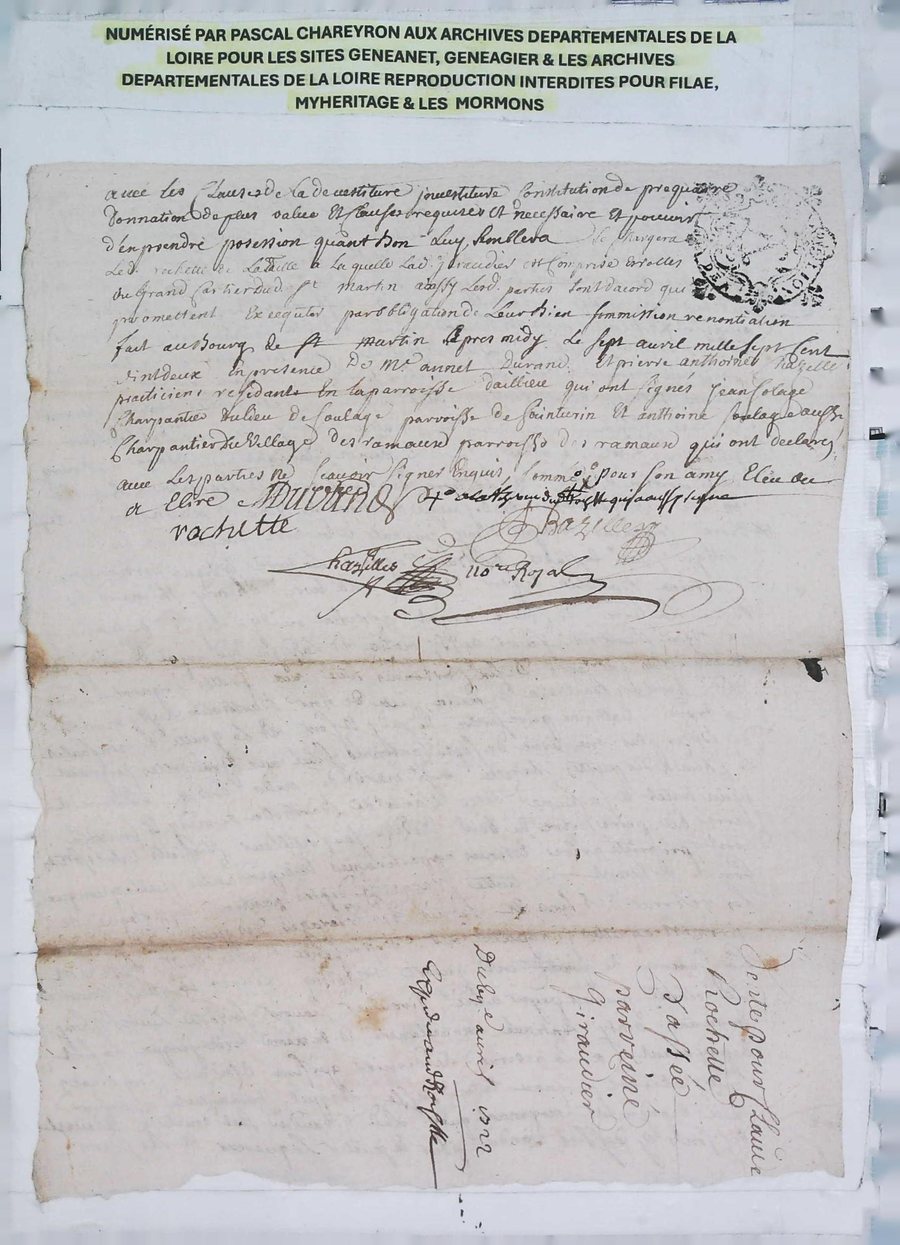 NUMÉRISÉ PAR PASCAL CHAREYRON AUX ARCHIVES DEPARTEMENTALES DE LA
LOIRE POUR LES SITES GENEANET, GENEAGIER & LES ARCHIVES
DEPARTEMENTALES DE LA LOIRE REPRODUCTION INTERDITES POUR FILAE,
MYHERITAGE & LES MORMONS
avec les Clauses de la devestiture jnvestiture Constitution de prequaire
Donnation de plus value Et Clauses requises Et necessaire Et pouvoir
d'en prendre posession quant Bon Luy Semblera Se Chargera
Led. rochette de La Taille a La quelle Lad. jiraudier est Comprise
du Grand Cartier dud. St martin Lesd. parties Sont dacord qui
promettent Executter par obligation de Leur Bien Soumission renontiation
fait au Bourg de St martin apres midy Le Sept avril mille Sept Cent
vint deux En presence De Me annet Durand Et pierre anthoine
practiciens residants En la parroisse qui ont Signes Jean Colage
Charpantie du lieu de Soulage parroisse de Et anthoine Soulage aussi
Charpantier du Village des ramaux parroisse des ramaux qui ont declarer
avec Les parties Ne Scavoir Signer Enquis Sommes pour Son amy Eleu ou
a Elire Durand
rochette Bazilleze
Chazelles nore Royal
Vente pour Claude
Rochette
passée
par reine
Giraudier
Du 7e avril 1722